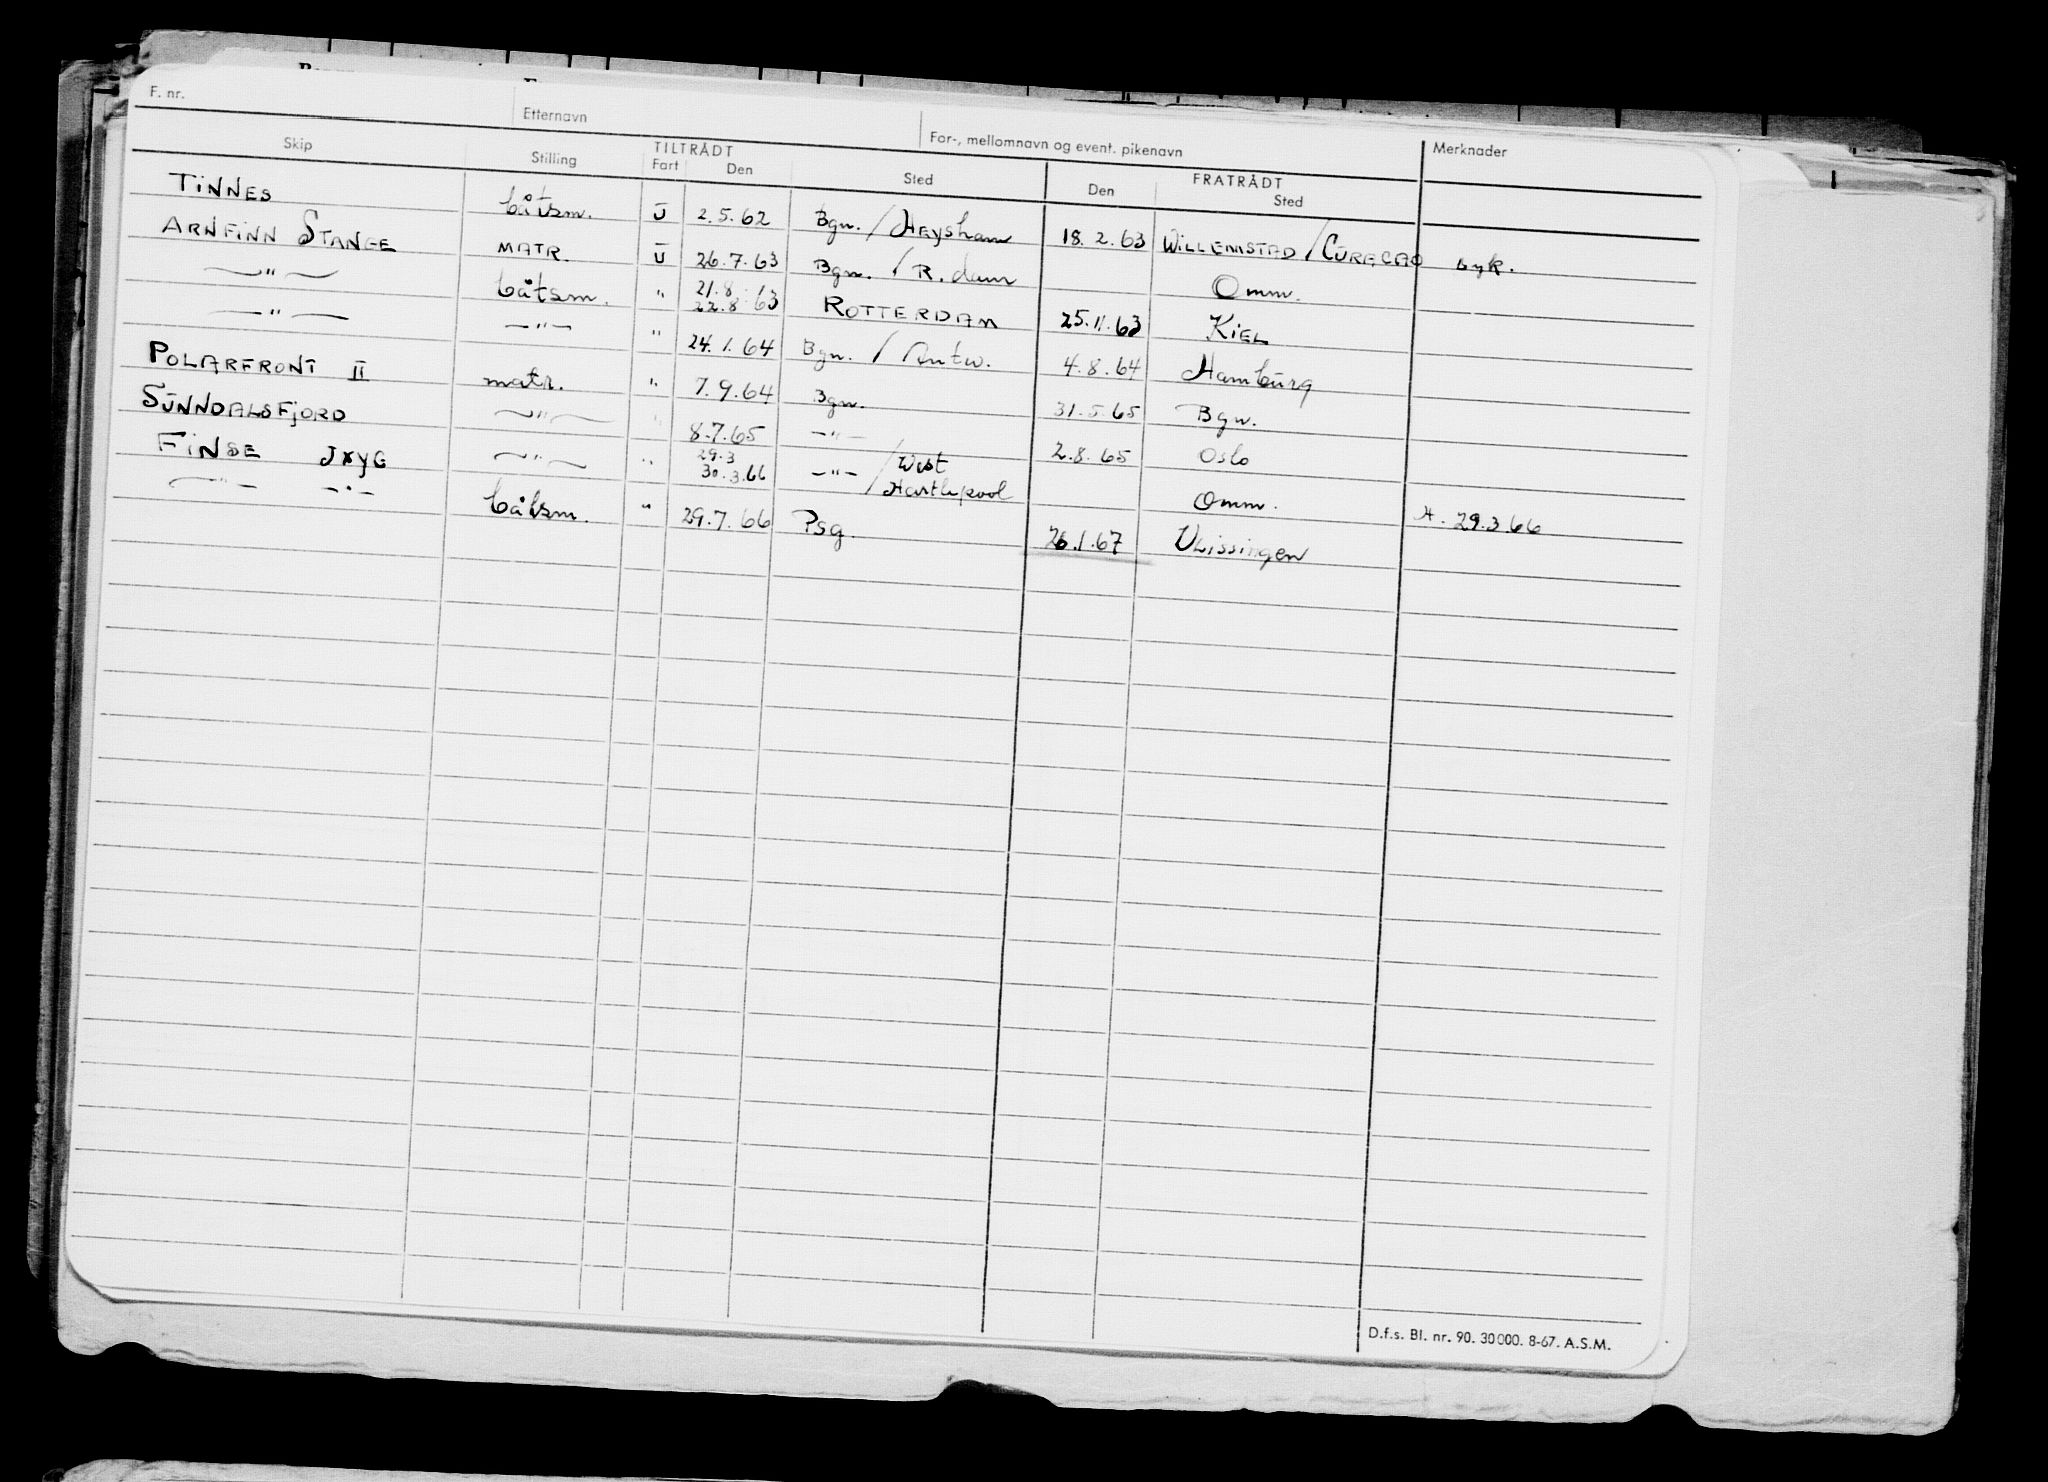 F. nr. Etternavn For-, mellomnavn og event. pikenavn Merknader
TILTRÅDT FRATRÅDT
Skip Stilling Fart Den Sted Den Sted
TINNES båtsm. U 2.5.62 Bgn. / Heysham 18.2.63 WILLEMSTAD / CURACAO syk.
ARNFINN STANGE MATR. U 26.7.63 Bgn. / R.dam Omm.
—"— båtsm. " 21.8
22.8.63 ROTTERDAM 25.11.63 KIEL
—"— —"— " 24.1.64 Bgn. / Antw. 4.8.64 Hamburg
POLARFRONT II matr. " 7.9.64 Bgn. 31.5.65 Bgn.
SUNNDALSFJORD —"— " 8.7.65 —"— 2.8.65 Oslo
FINSE JXYG —"— " 29.3
30.3.66 —"— / West
Hartlepool Omm. A. 29.3.66
—"— —"— båtsm. " 29.7.66 Psg. 26.1.67 Vlissingen
D.f.s. Bl. nr. 90. 30000. 8-67. A.S.M.